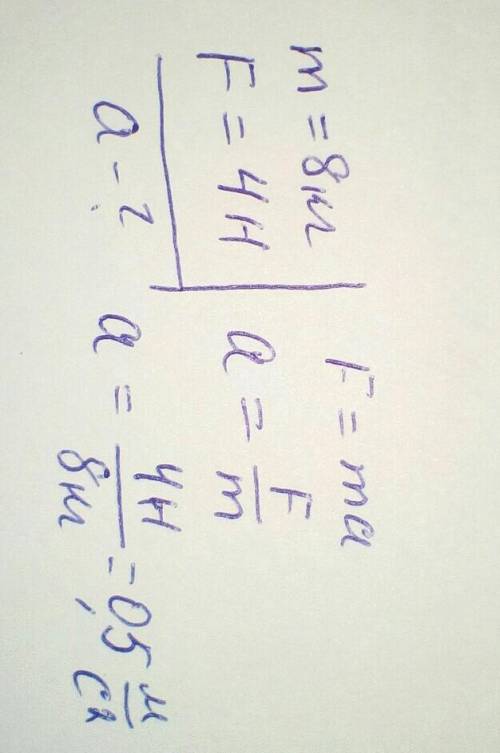 m = 8кг
F = 4Н
a - ?
F = ma
a = F/m
a = 4Н/8кг = 0,5 м/с²